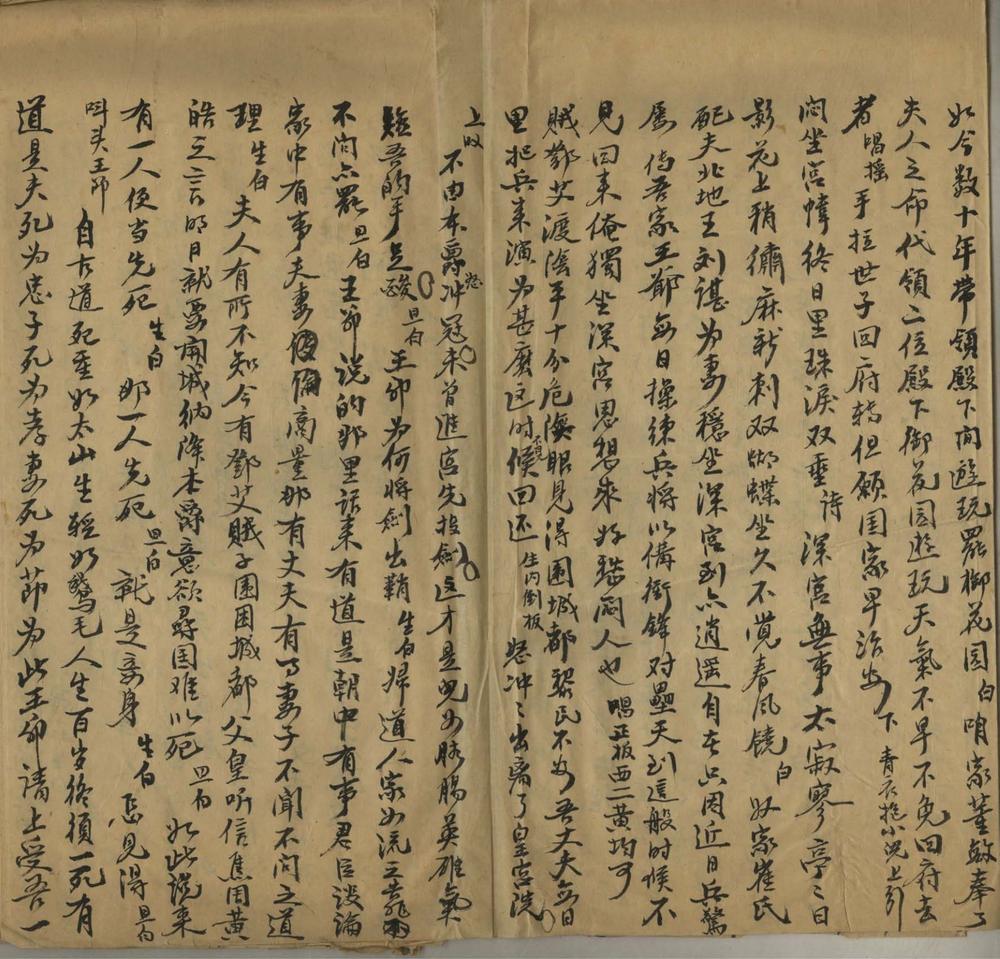 如今数十年带领殿下间遊玩罢御花园 白 咱家董敏奉了
夫人之命代领二位殿下御花园遊玩天氣不早不免回府去
者 唱摇 手拉世子回府转但願国家早治安 下 青衣抱小兒上引
闷坐宫幃终日里珠淚双垂 诗 深宫無事太寂寥亭亭日
影花上稍綉麻彩刺双蝴蝶坐久不觉春风饒 白 奴家崔氏
配夫北地王刘谌为妻穩坐深宫到亦逍遥自在只因近日兵驚
屡 吾家王爺每日操练兵将以備衝鋒对壘天到這般时候不
見回来俺獨坐深宫思想来好愁闷人也 唱正板西二黄均可
贼鄧艾渡陰平十分危險眼見得困城都黎民不安吾丈夫每日
里把兵来演为甚麽这时候不見回还 生内倒板 怒冲冲出離了皇宫院
上叹 不由本爵怒冲冠未曾進宫先拔劍这才是兒女肠英雄氣
短吾的手足酸 旦白 王爷为何将劍出鞘 生白 婦道人家女流三靠
不问亦罢 旦白 王爷说的那里话来有道是朝中有事君臣谈論
家中有事夫妻商量那有丈夫有了妻子不闻不问之道
理 生白 夫人有所不知今有鄧艾贼子围困城都父皇听信焦周黄
皓之言明日就要開城纳降本爵意欲尋国难以死 旦白 如此说来
有一人便当先死 生白 那一人先死 旦白 就是妾身 生白 怎見得 旦白
叫头王爷 自古道死重如太山生轻如鸿毛人生百岁终须一死有
道是夫死为忠子死为孝妻死为节为此王爷请上受吾一